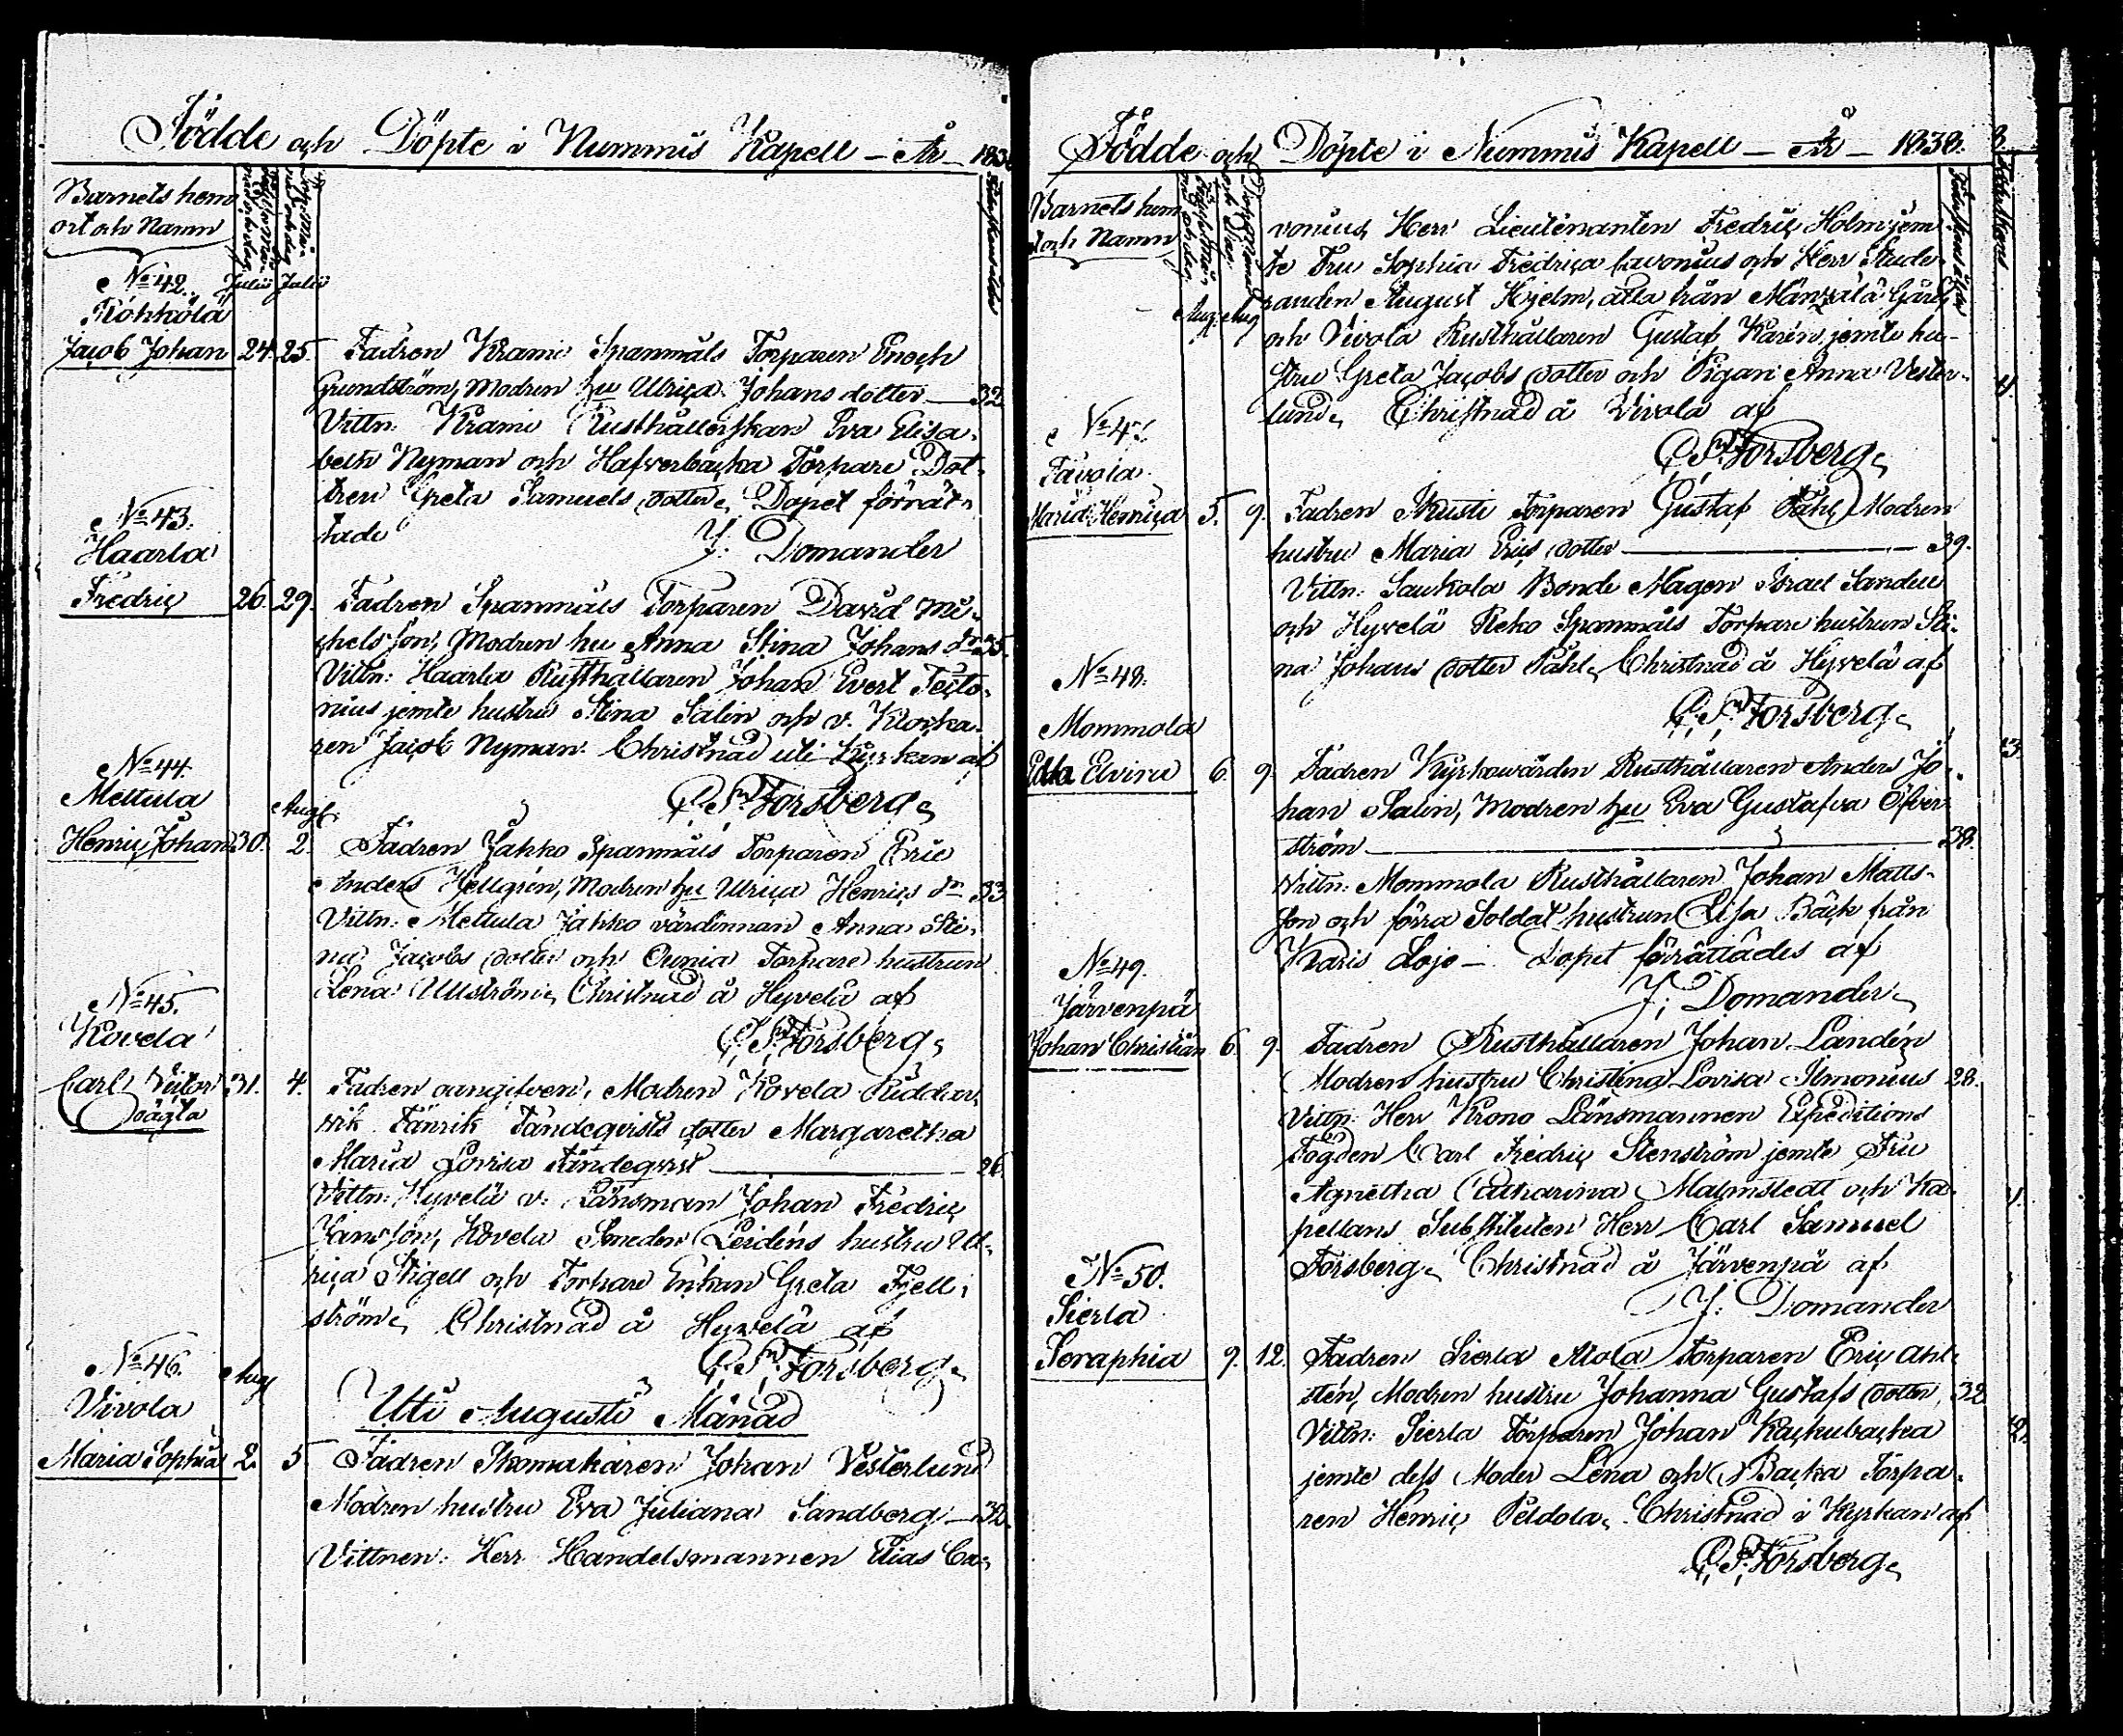 Födde och Döpte i Nummis Kapell – År – 183
Barnets hem
ort och Namn
No 42. Julii Julii
Röhkölä
Jacob Johan 24. 25. Fadren Krami Spanmåls Torparen Enoch
Grundström, Modren hu Ulrica Johans dotter — 32
Vittn: Krami Rusthållerskan Eva Elisa-
beth Nyman och Hafverbacka Torpare Dot-
tren Greta Samuels dotter. Dopet förrät-
tade J: Domander
No 43.
Haarla
Fredric 26. 29. Fadren Spanmåls Torparen David Mi-
chelsson, Modren hu Anna Stina Johans dr 35.
Vittn: Haarla Rusthållaren Johan Evert Tecto-
nius jemte hustru Stina Salin och v. Klocka-
ren Jacob Nyman. Christnad uti Kyrkan af
C. Sm. Forsberg.
No 44.
Mettula
Augt.
Henric Johan 30. 2. Fadren Jakko Spanmåls Torparen Eric
Anders Hellgrén, Modren hu Ulrica Henrics dr 33
Vittn: Mettula Jakko värdinnan Anna Sti-
na Jacobs dotter och Ounia Torpare hustrun
Lena Ullström. Christnad å Hyvelä af
C. Sm. Forsberg.
No 45.
Kovela
Carl Victor 31. 4. Fadren oangifven, Modren Kovela Riddar
oägta
Fänrik Tandeqvists dotter Margaretha
Maria Lovisa Tandeqvist — 26.
Vittn: Hyvelä v. Länsman Johan Fredric
Jansson, Kovela Smeden Leidéns hustru Ul-
rica Stigell och Torpare Enkan Greta Fjell-
ström. Christnad å Hyvelä af
C. Sm. Forsberg.
No 46. Aug
Uti Augusti Månad
Vivola
Maria Sophia 2. 5 Fadren Skomakaren Johan Vesterlund
Modren hustru Eva Juliana Sandberg — 32.
Vittnen: Herr Handelsmannen Elias Ca-
Födde och Döpte i Nummis Kapell – År – 1838.
Barnets hem
ort och Namn
vonius, Herr Lieutenanten Fredric Holm jem
te Fru Sophia Fredrica Cavonius och Herr Stude-
Aug. Aug randen August Hjelm, alla från Mänsälä Gård,
och Vivola Rusthållaren Gustaf Karén jemte hu-
stru Greta Jacobs dotter och Pigan Anna Vester- 4.
lund. Christnad å Vivola af
C. Sm. Forsberg.
No 47.
Tavola
Maria Henrica 5. 9. Fadren Skusti Torparen Gustaf Påhl, Modren
hustru Maria Erics dotter — 39.
Vittn: Saukola Bonde Magen Israel Sandell
och Hyvelä Reko Spanmåls Torpare hustrun Sti-
na Johans dotter Påhl. Christnad å Hyvelä af
C. Sm. Forsberg.
No 48.
Mommola
3.
Edla Elvira 6. 9. Fadren Kyrkowärden Rusthållaren Anders Jo-
han Salin, Modren hu Eva Gustafva Öfver-
ström — 38.
Vittn: Mommola Rusthållaren Johan Matts-
son och förra Soldat hustrun Lisa Bäck från
Karis Lojo – Dopet förrättades af
J: Domander.
No 49.
Järvenpä
Johan Christian 6. 9. Fadren Rusthållaren Johan Landén
Modren hustru Christina Lovisa Ilmonius 28.
Vittn: Herr Krono Länsmannen Expeditions
Fogden Carl Fredric Stenström jemte Fru
Agnetha Catharina Malmstedt och Ka- 4.
pellans Substituten Herr Carl Samuel
Forsberg. Christnad å Järvenpä af
J: Domander
No 50.
Sierla
Seraphia 9. 12. Fadren Sierla Atola Torparen Eric Ahl-
stén, Modren hustru Johanna Gustafs dotter, 32
Vittn: Sierla Torparen Johan Kackubacka 2.
jemte dess Moder Lena och Backa Torpa-
ren Henric Peldola. Christnad i Kyrkan af
C. Sm. Forsberg.